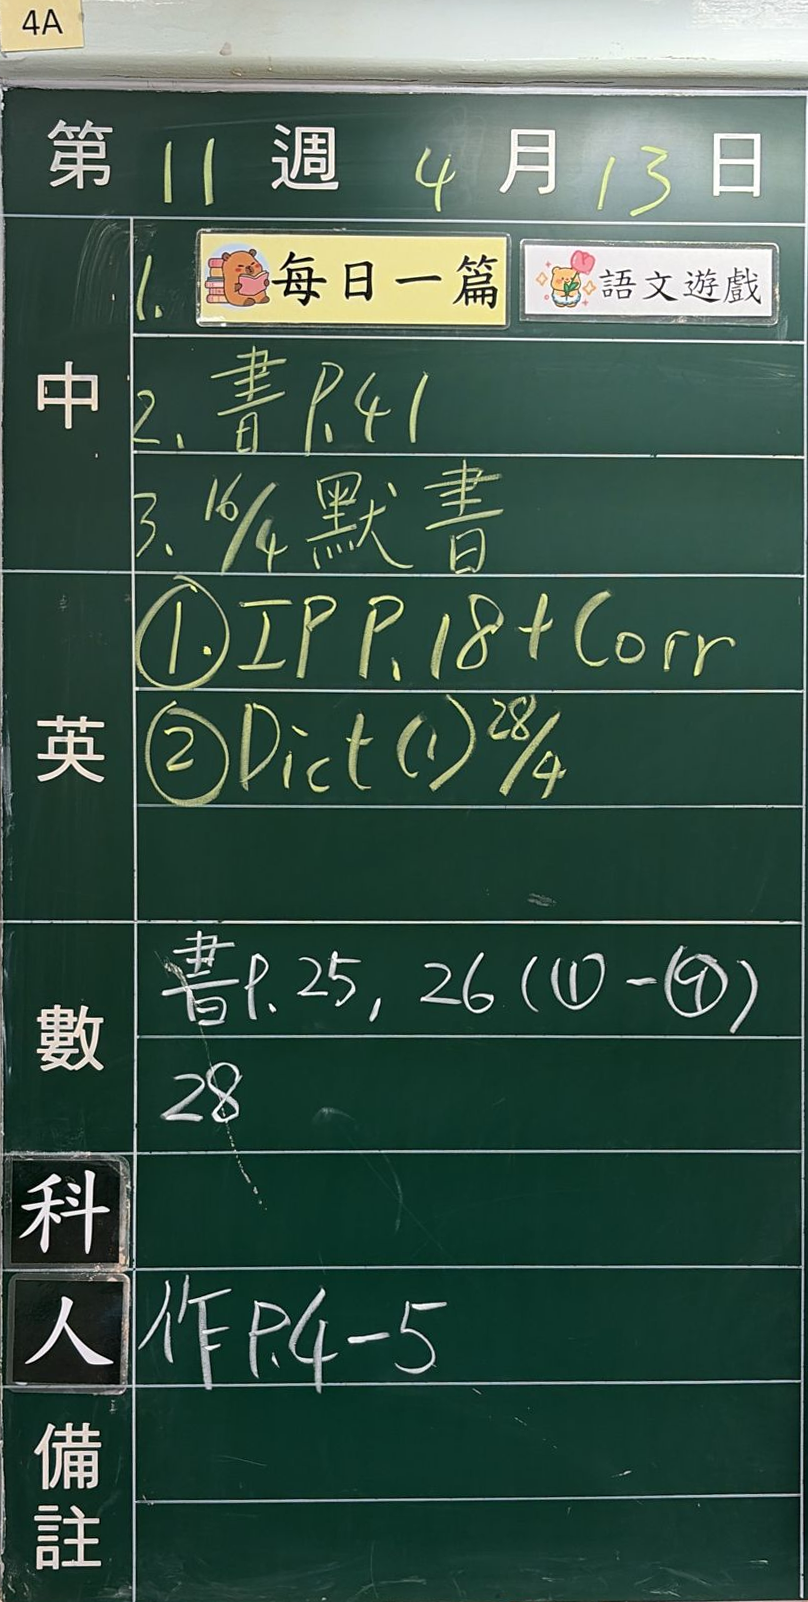 4A
第 11 週 4 月 13 日
中
1. 每日一篇 語文遊戲
2. 書 P.41
3. 16/4 默書
英
①. IP P.18 + Corr
② Dict (1) 28/4
數
書P. 25, 26 (① - ⑨)
28
科
人
作 P.4-5
備註